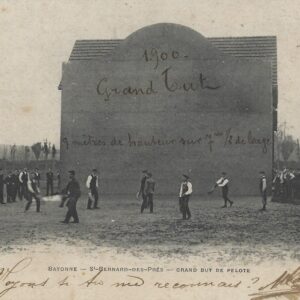 1900.
Grand Tut
9 mètres de hauteur sur 7 m ½ de large
BAYONNE — St-BERNARD-DES-PRÉS — GRAND BUT DE PELOTE
Voyons si tu me reconnais ?